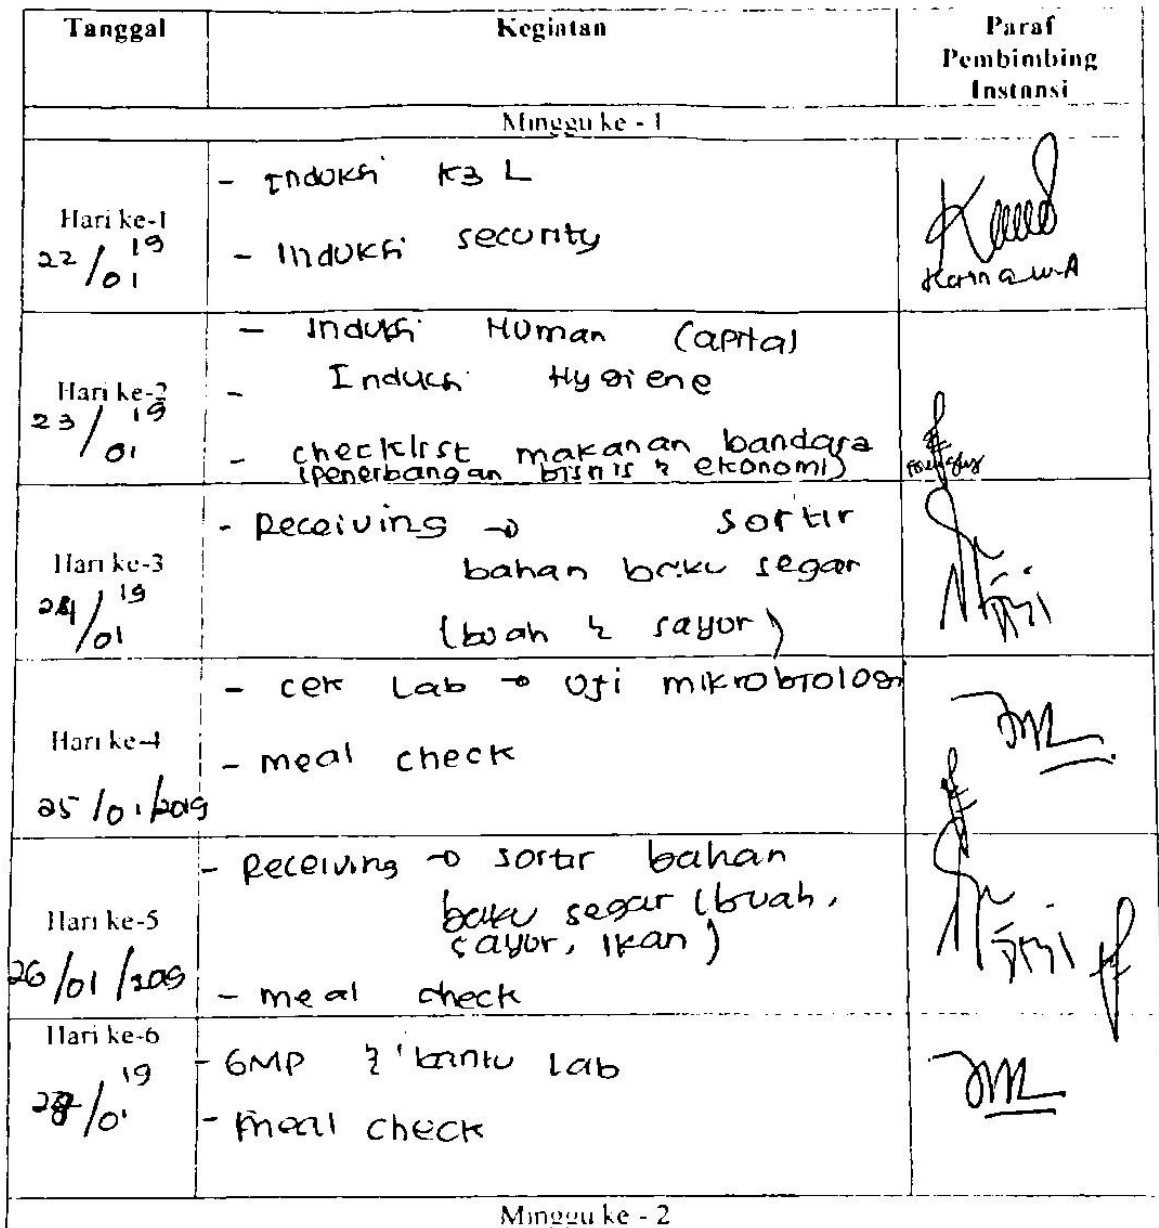 Tanggal
Kegiatan
Paraf
Pembimbing
Instansi
Minggu ke - 1
Hari ke-1
22/01 19
- Induksi K3 L
- Induksi security
Karnawi.A
Hari ke-2
23/01 19
- Induksi Human Capital
- Induksi Hygiene
- checklist makanan bandara
(penerbangan bisnis & ekonomi)
Hari ke-3
24/01 19
- Receiving → sortir
bahan baku segar
(buah & sayur)
Hari ke-4
25/01/2019
- cek Lab → Uji mikrobiologi
- meal check
Hari ke-5
26/01/2019
- Receiving → sortir bahan
baku segar (buah,
sayur, ikan)
- meal check
Hari ke-6
/01 19
- GMP & bantu Lab
- meal check
Minggu ke - 2